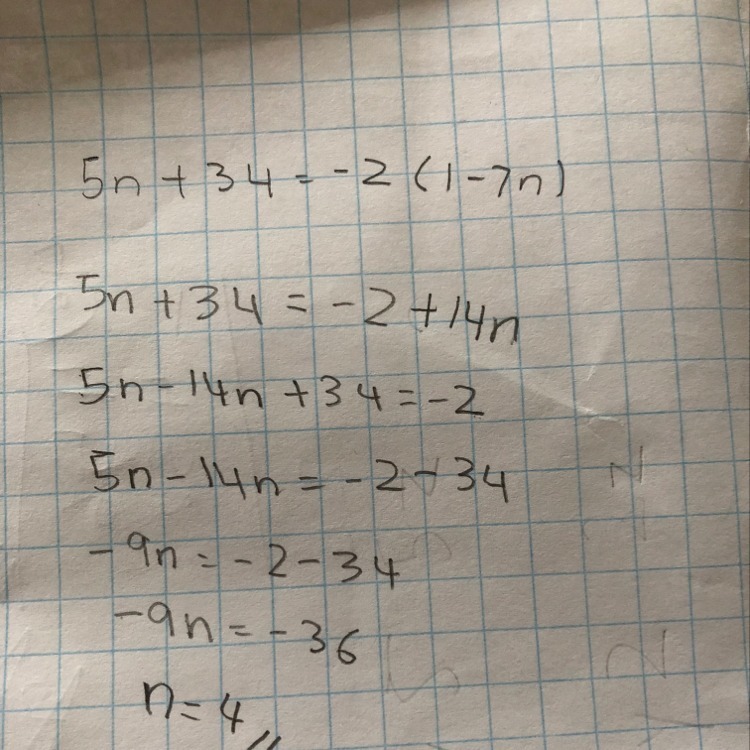 5n + 34 = -2 (1 - 7n)
5n + 34 = -2 + 14n
5n - 14n + 34 = -2
5n - 14n = -2 - 34
-9n = -2 - 34
-9n = -36
n = 4 //